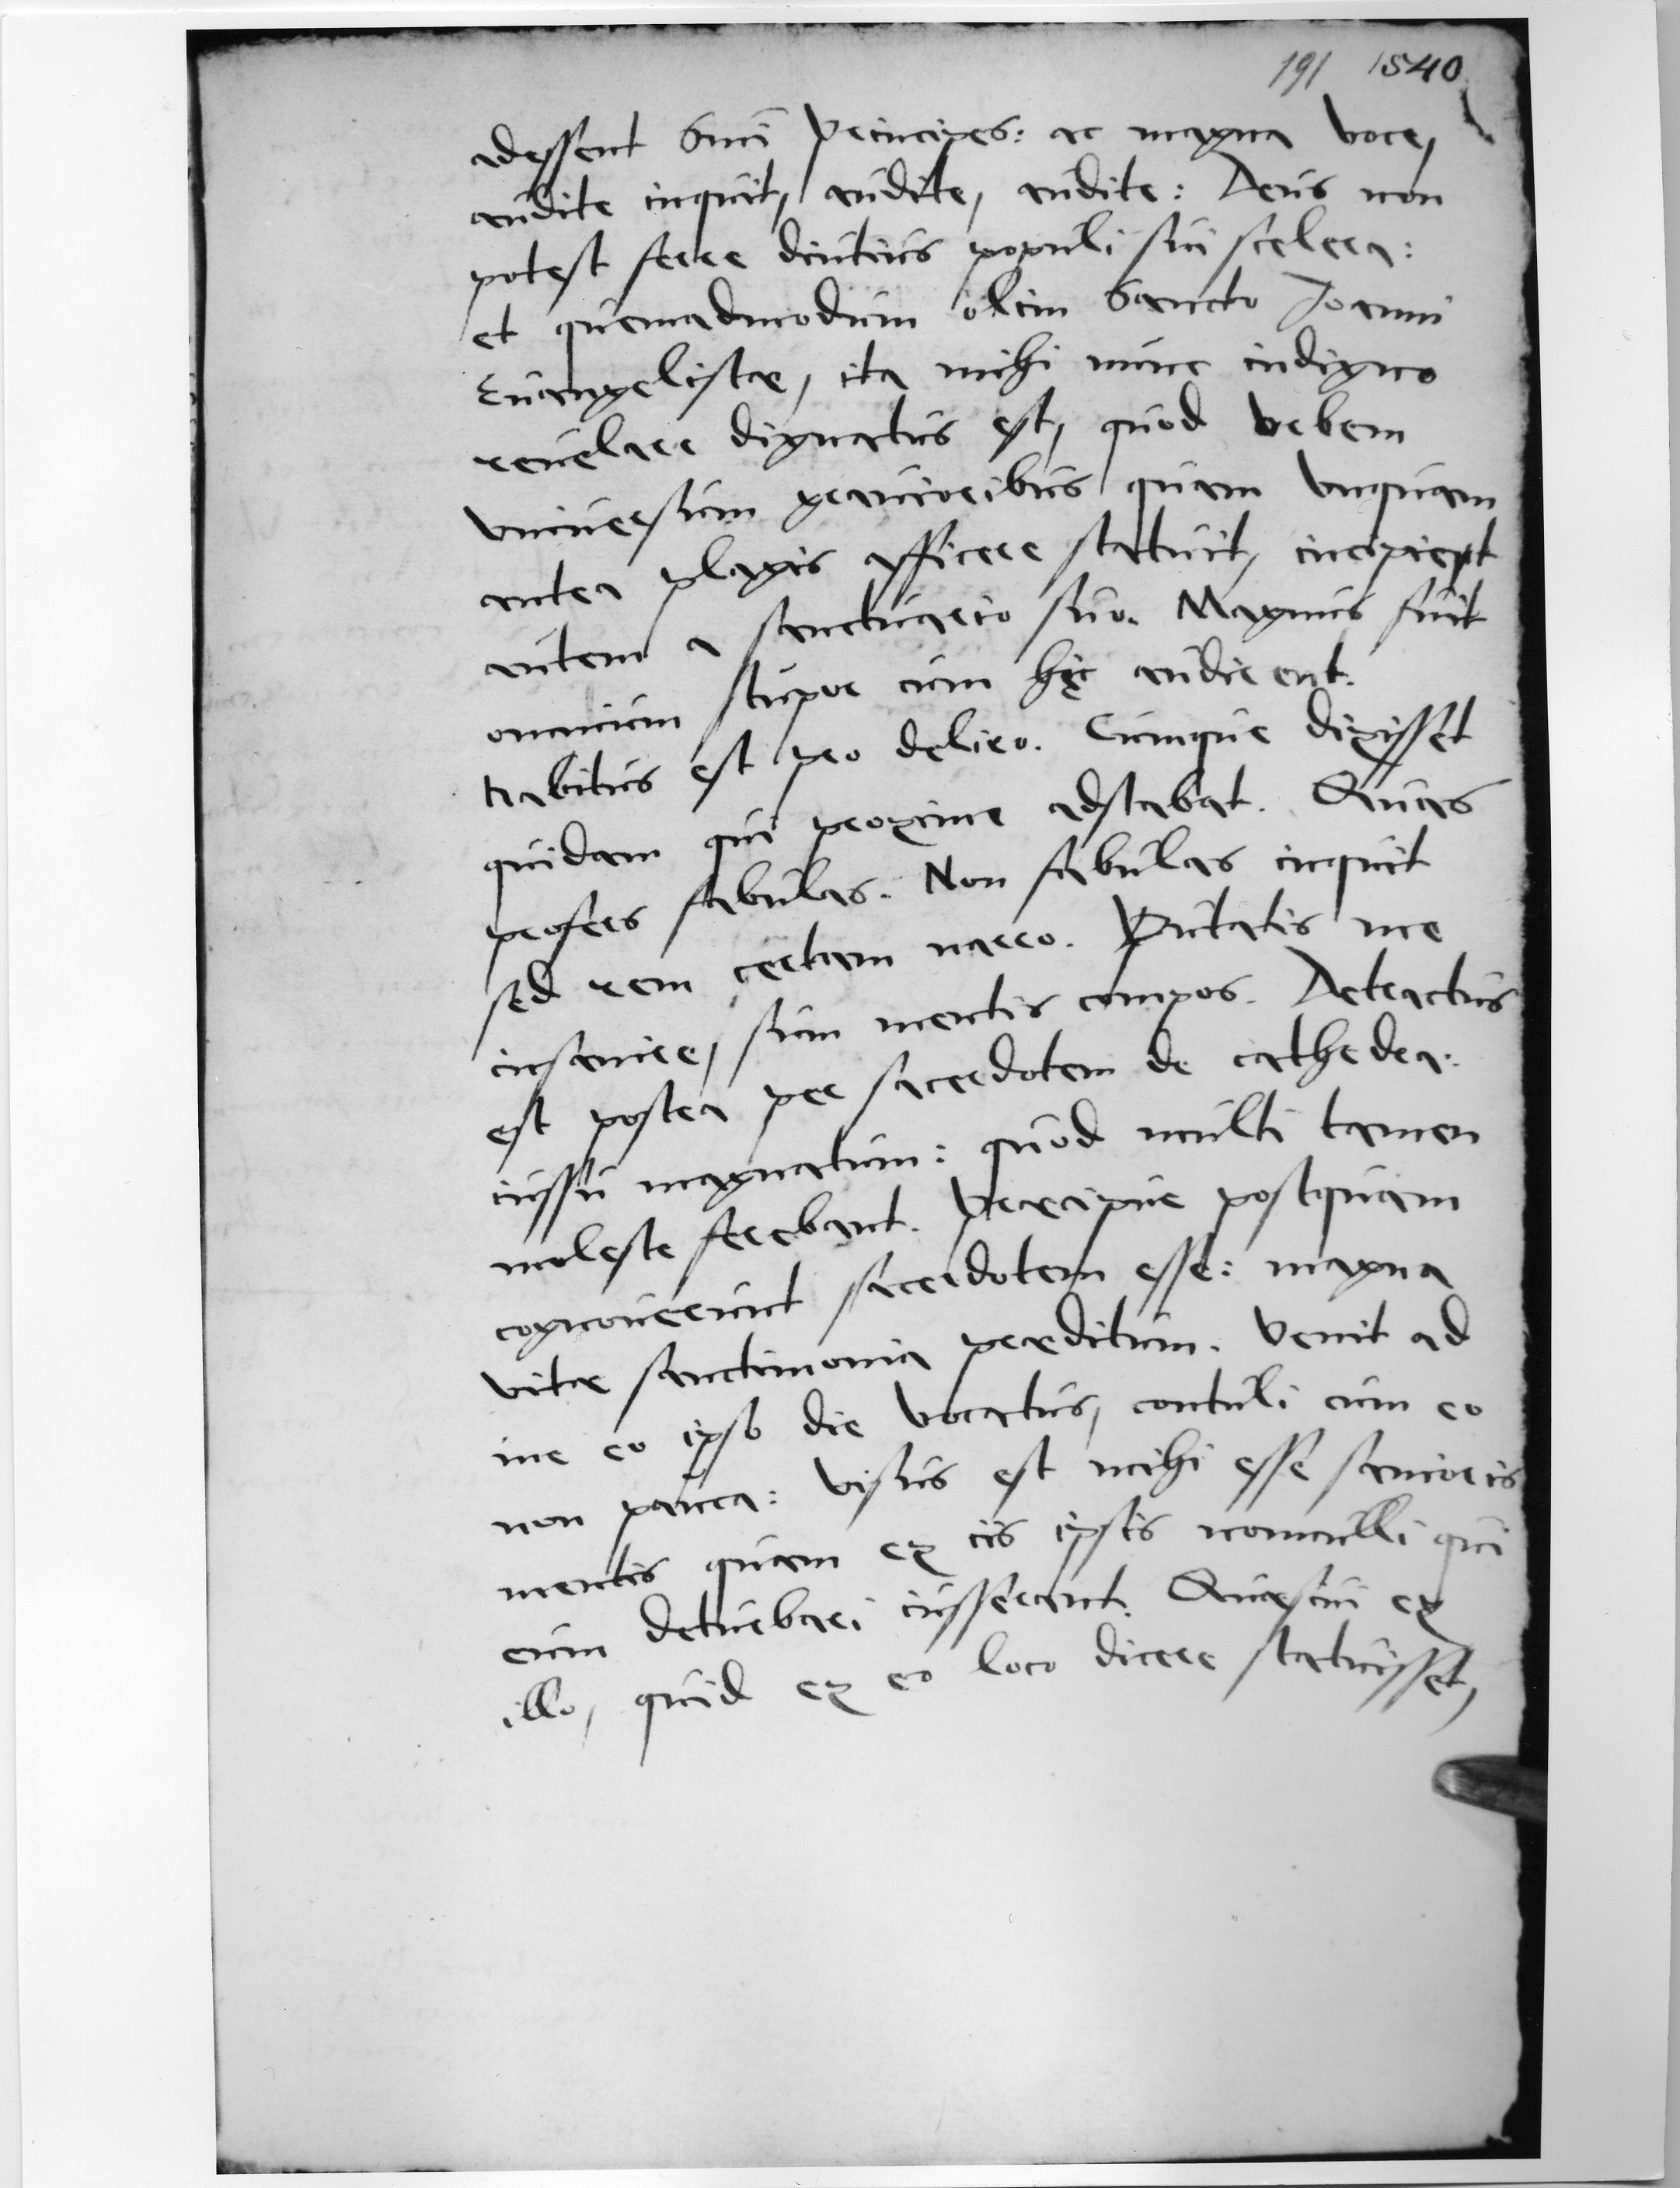 191 1540
adessent Smi Principes: ac magna voce,
audite inquit, audite, audite: Deus non
potest ferre diutius populi sui scelera:
et quemadmodum olim Sancto Joanni
Euangelistae, ita mihi nunc indigno
reuelare dignatus est, quod vrbem
vniuersum grauioribus quam vnquam
antea plagis afficere statuit, incipiet
autem a sanctuario suo. Magnus fuit
omnium stupor cum hęc audirent.
habitus est pro deliro. Cumque dixisset
quidam qui proxime adstabat. Quas
profers fabulas. Non fabulas inquit
sed rem certam narro. Putatis me
insanire, sum mentis compos. Detractus
est postea per sacerdotem de cathedra:
iussu magnatum: quod multi tamen
moleste ferebant. Praecipue postquam
cognouerunt sacerdotem esse: magna
vitae sanctimonia praeditum. Venit ad
me eo ipso die vocatus, contuli cum eo
non pauca: visus est mihi esse sanioris
mentis quam ex iis ipsis nonnulli qui
eum deturbari iusserant. Quaesiui ex
illo, quid ex eo loco dicere statuisset,